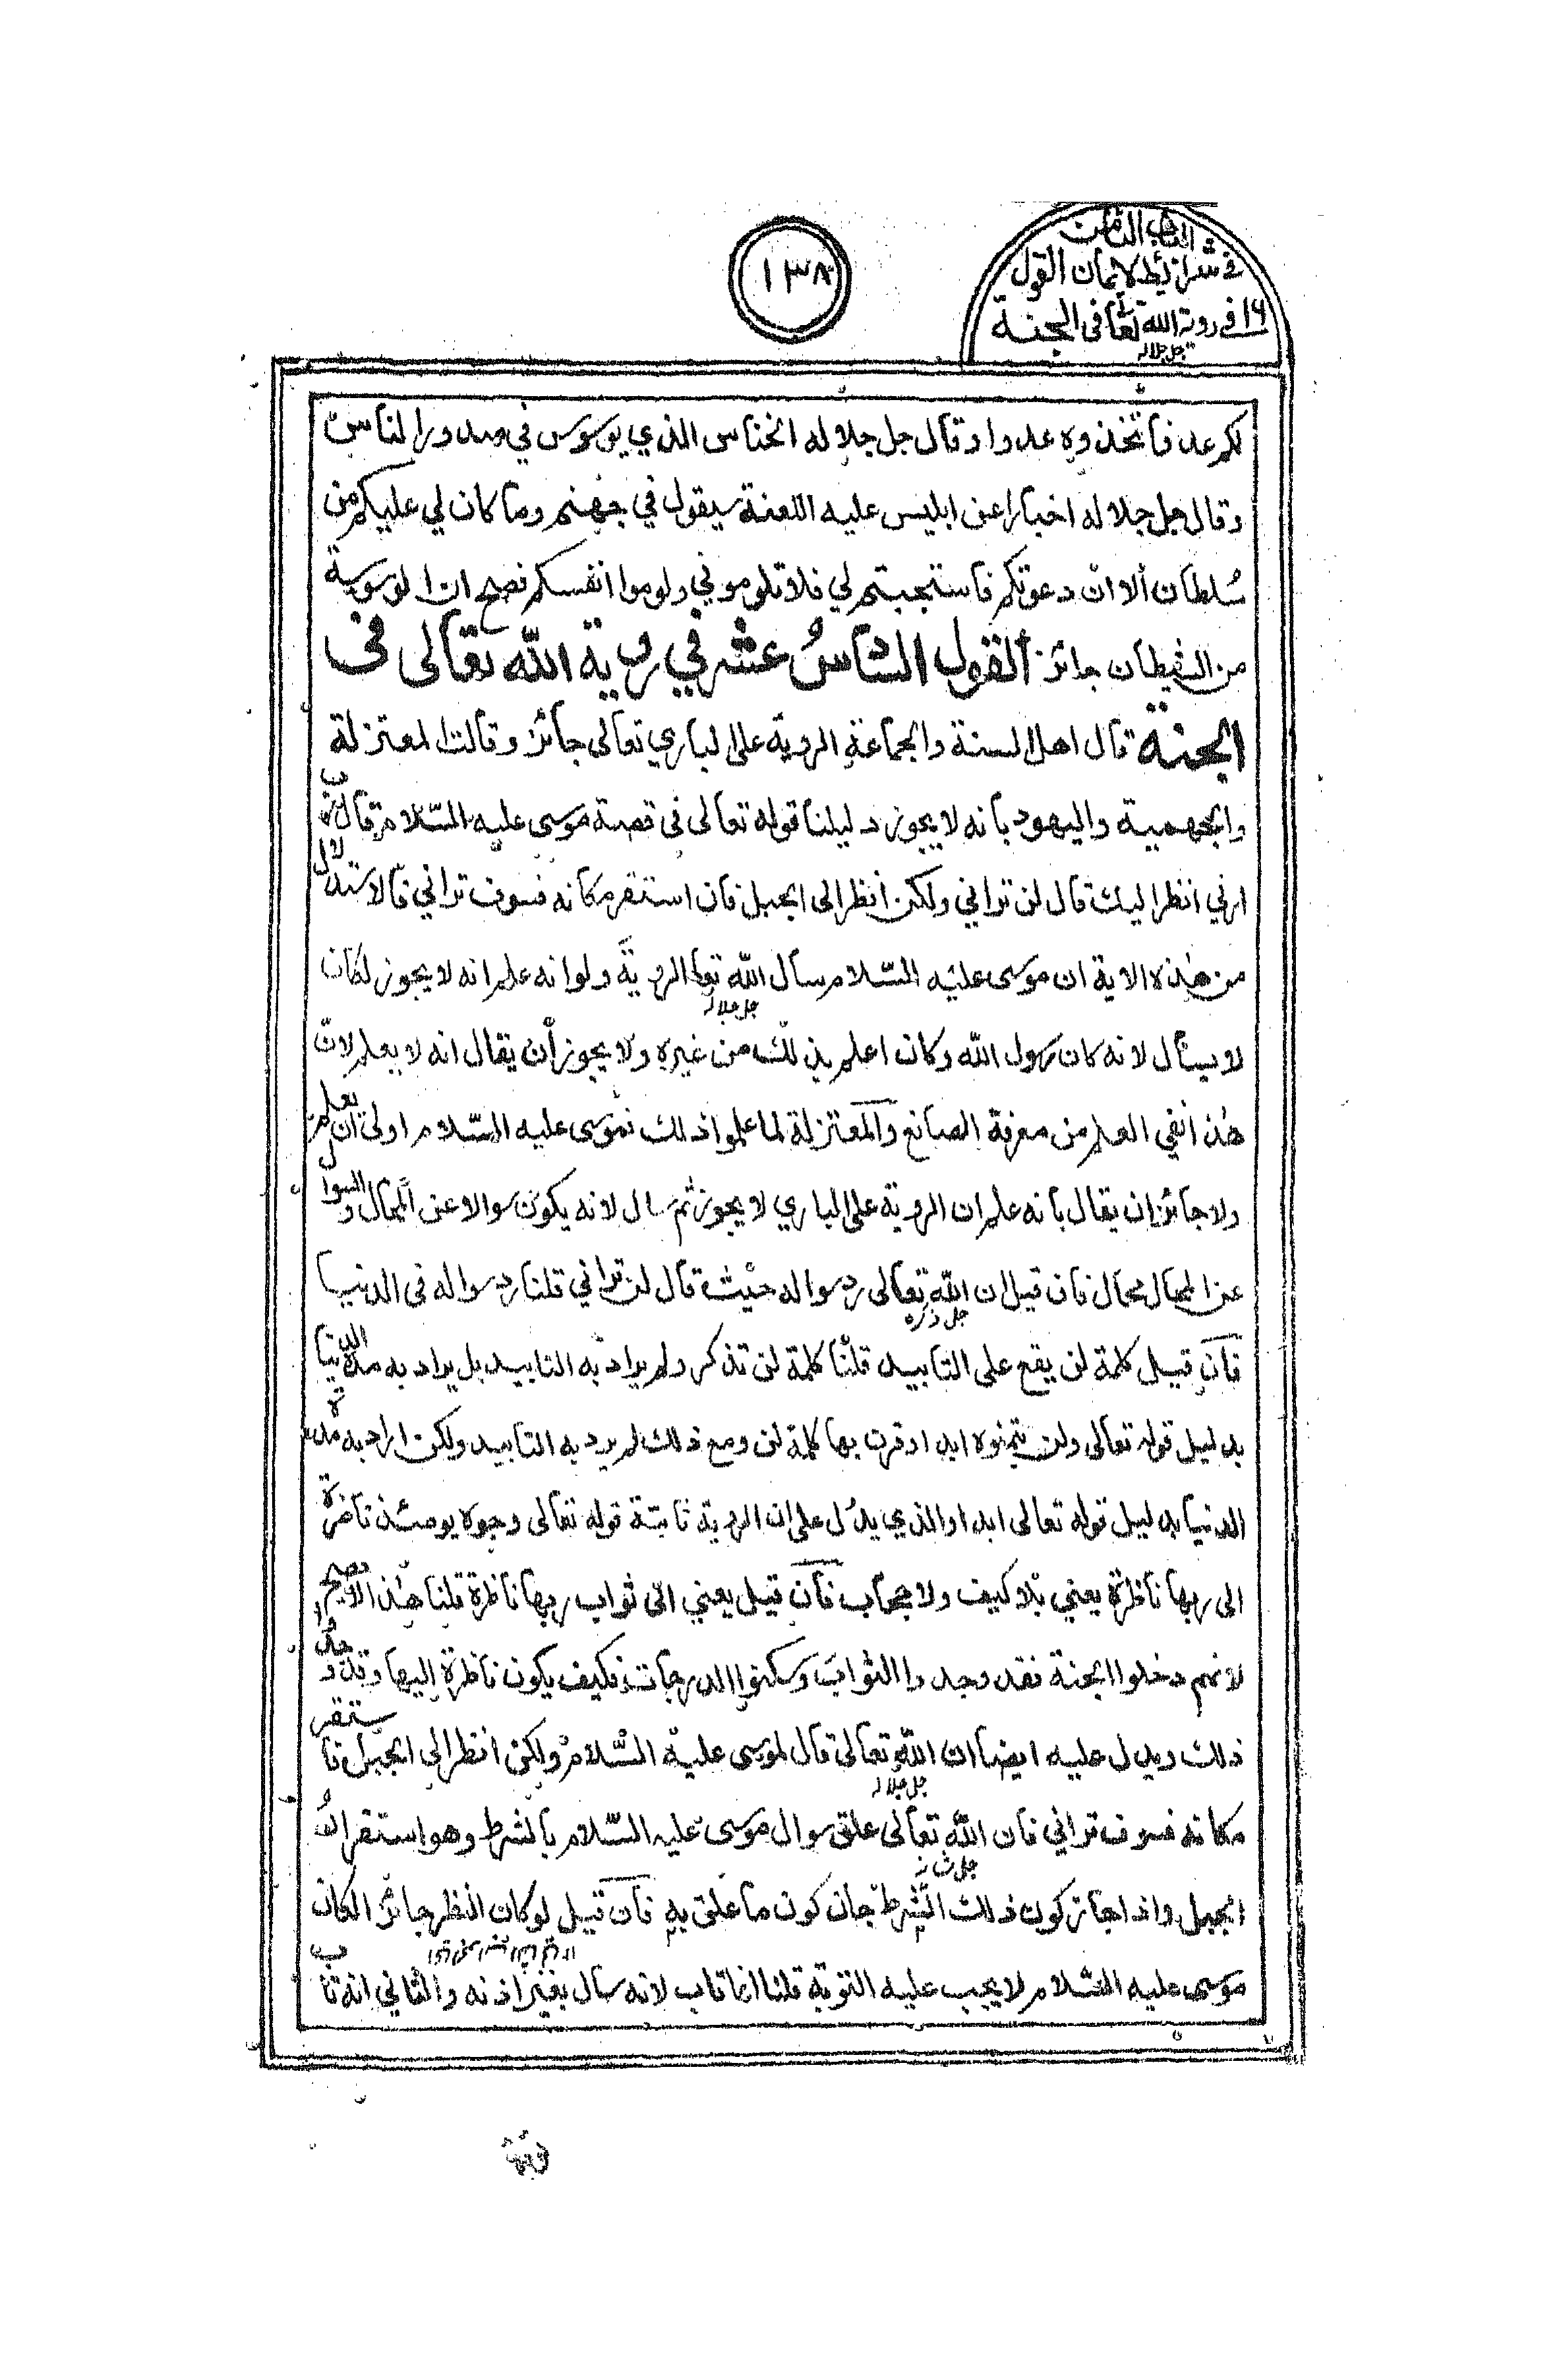 ١٣٨
الباب الثامن
في شرائط الايمان القول
١٦ في روية الله تعالى في الجنة
جل جلاله
لكم عدو فاتخذوه عدوا وقال جل جلاله الخناس الذي يوسوس في صدور الناس
وقال جل جلاله اخبارا عن ابليس عليه اللعنة سيقول في جهنم وما كان لي عليكم من
سُلطان ألا ان دعوتكم فاستجبتم لي فلا تلوموني ولوموا انفسكم فصح ان الوسوسة
من الشيطان جائز القول السادسُ عشر في روية الله تعالى في
الجنة قال اهل السنة والجماعة الروية على الباري تعالى جائز وقالت المعتزلة
والجهمية واليهود بانه لا يجوز دليلنا قوله تعالى في قصة موسى عليه السّلام قال رب
ارني انظر اليك قال لن تراني ولكن انظر الى الجبل فان استقر مكانه فسوف تراني فالاستدلال
من هذه الاية ان موسى عليه السّلام سأل الله تعالى الروية ولو انه علم انه لا يجوز لكان
جل جلاله
لا يسأل لانه كان رسول الله وكان اعلم بذلك من غيره ولا يجوز أن يقال انه لا يعلم لانّ
هذا نفي العلم من معرفة الصانع والمعتزلة لما علموا ذلك فموسى عليه السّلام اولى ان يعلم
ولا جائز ان يقال بانه علم ان الروية على الباري لا يجوز ثم سال لانه يكون سوالا عن المحال والسوال
عن المحال محال فان قيل ان الله تعالى رد سواله حيث قال لن تراني قلنا رد سواله في الدنيا
جل ذكره
فان قيل كلمة لن يقع على التابيد قلنا كلمة لن تذكر ولم يراد به التابيد بل يراد به مدة الدنيا
بدليل قوله تعالى ولن يتمنوه ابدا وقرن بها كلمة لن ومع ذلك لم يرد به التابيد ولكن اراد به مدة
الدنيا بدليل قوله تعالى ابدا والذي يدل على ان الروية ثابتة قوله تعالى وجوه يومئذ ناضرة
الى ربها ناظرة يعني بلا كيف ولا حجاب فان قيل يعني الى ثواب ربها ناظرة قلنا هذا لا يصح
لانهم دخلوا الجنة فقد وجدوا الثواب وسكنوا الدرجات فكيف يكون ناظرة اليها وقد وجدوا
ذلك ويدل عليه ايضا ان الله تعالى قال لموسى عليه السّلام ولكن انظر الى الجبل فان استقر
جل جلاله
مكانه فسوف تراني فان الله تعالى علق سوال موسى عليه السّلام بالشرط وهو استقرار
جل شانه
الجبل واذا جاز كون ذلك الشرط جاز كون ما علق به فان قيل لو كان النظر جائز الكان
موسى عليه السّلام لا يجب عليه التوبة قلنا انما تاب لانه سأل بغير اذنه والثاني انه تاب